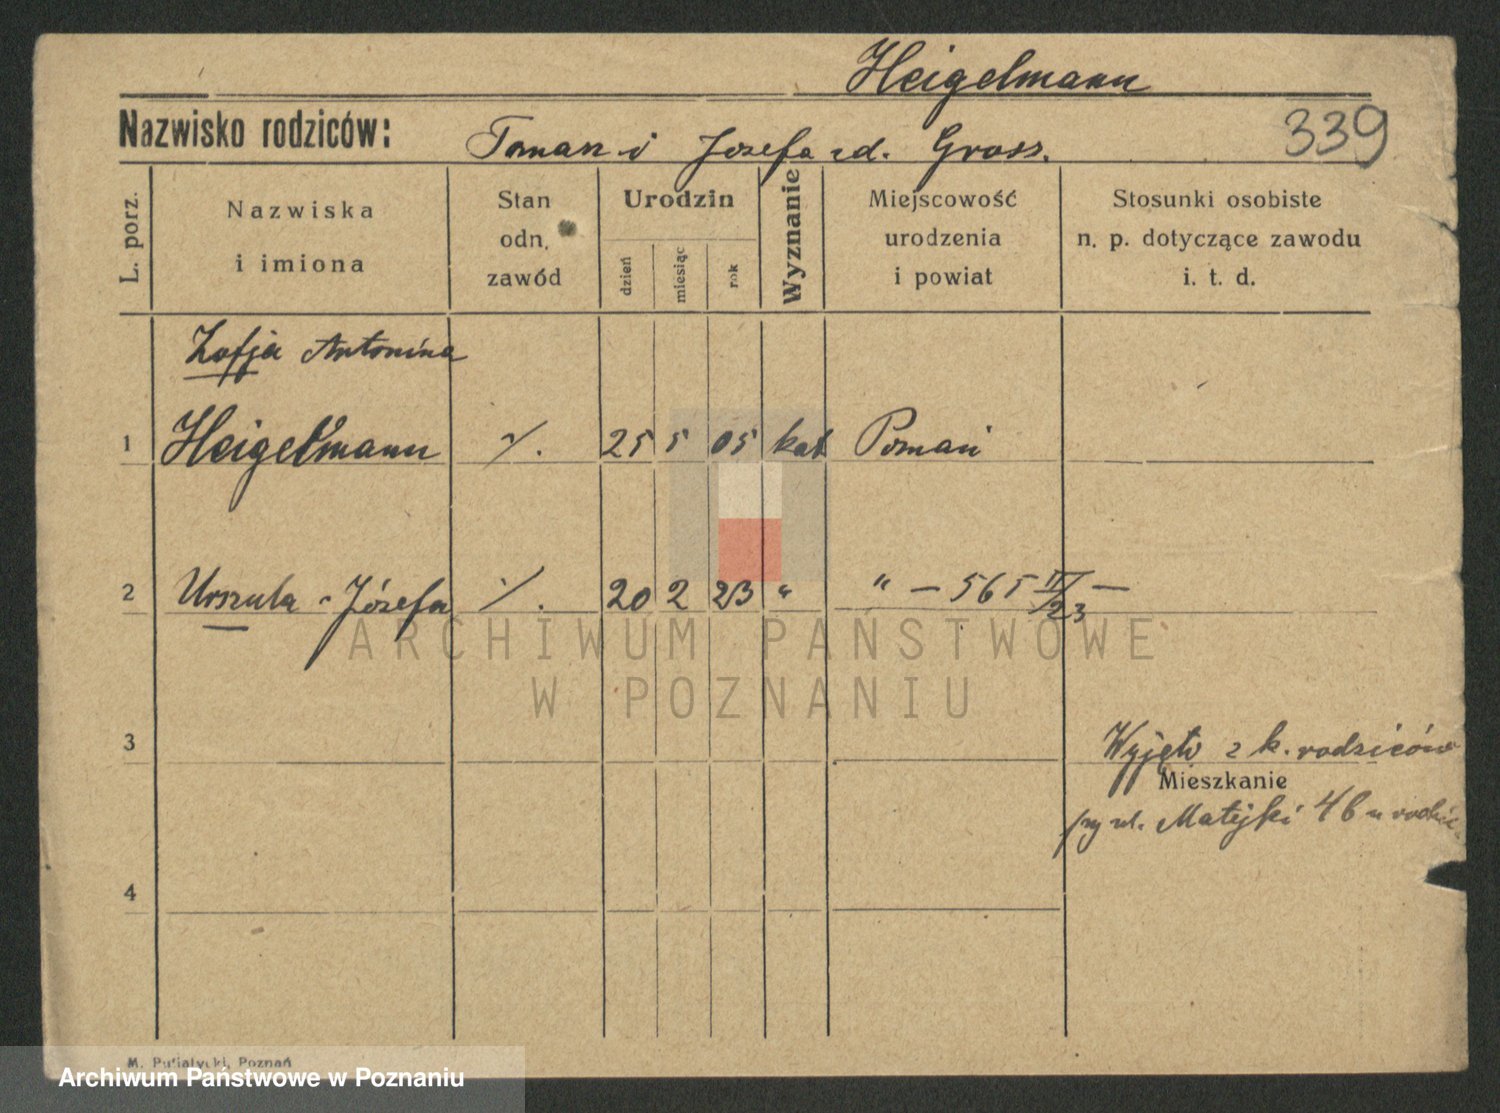 Heigelmann
Nazwisko rodziców: Tomasz i Józefa zd. Gross.
339
L. porz.
Nazwiska
i imiona
Stan
odn.
zawód
Urodzin
dzień
miesiąc
rok
Wyznanie
Miejscowość
urodzenia
i powiat
Stosunki osobiste
n. p. dotyczące zawodu
i. t. d.
Zofja Antonina
1 Heigelmann ·/. 25 5 05 kat Poznań
2 Urszula - Józefa ·/. 20 2 23 " " — 565 II/23 —
ARCHIWUM PAŃSTWOWE
W POZNANIU
3
Wyjęto z k. rodziców
Mieszkanie
przy ul. Matejki 46 u rodzic
4
M. Putiatycki, Poznań
Archiwum Państwowe w Poznaniu